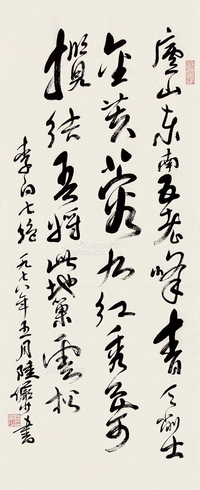 廬山东南五老峰青天削出
金芙蓉九江秀色可
攬結吾將此地巢雲松
李白七絕 一九七八年五月陸儼少書